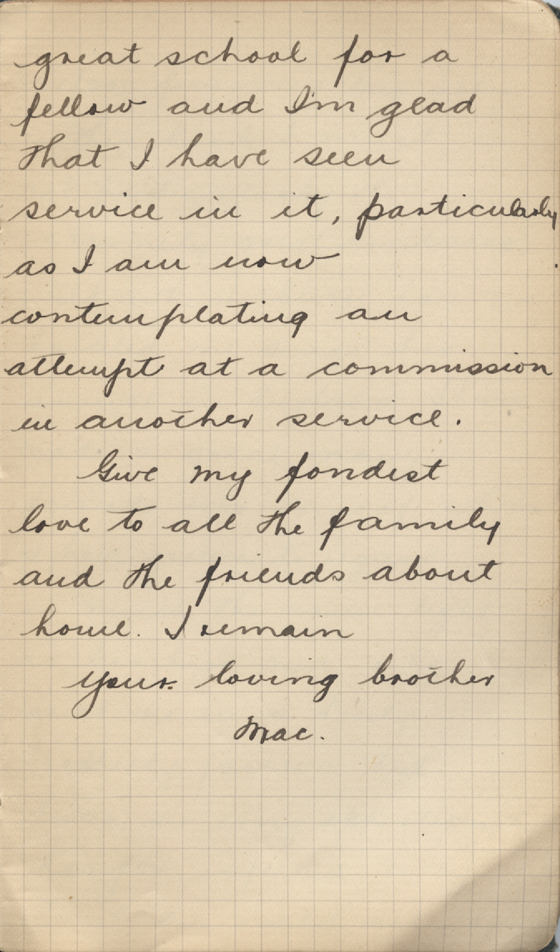 great school for a
fellow and I'm glad
that I have seen
service in it, particularly
as I am now
contemplating an
attempt at a commission
in another service.
Give my fondest
love to all the family
and the friends about
home. I remain
your loving brother
Mac.